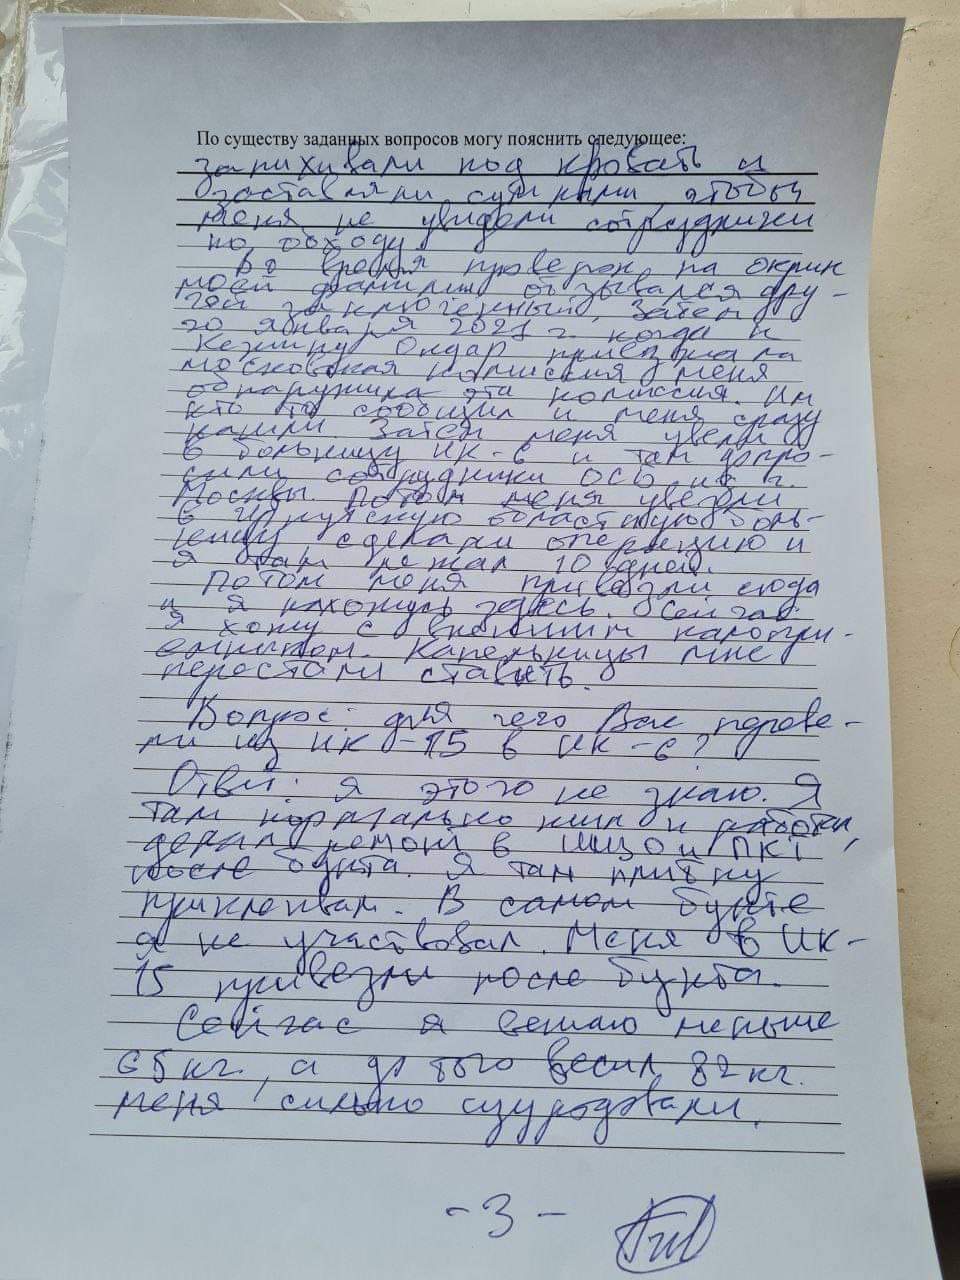 По существу заданных вопросов могу пояснить следующее:
запихивали под кровать и
заставляли сумками, чтобы
меня не увидели сотрудники
на обходу
Во время проверок на окрик
моей фамилии отзывался дру-
гой заключенный. Затем
20 января 2021 г. когда к
Кежику Ондар приезжала
московская комиссия меня
обнаружила эта комиссия. Им
кто то сообщил и меня сразу
нашли. Затем меня увели
в больницу ИК-6 и там допро-
сили сотрудники ОСБ из г.
Москвы. Потом меня увезли
в Иркутскую областную боль-
ницу сделали операцию и
я там лежал 10 дней.
Потом меня привезли сюда
и я нахожусь здесь. Сейчас
я хожу с калопри-
емником. Капельницы мне
перестали ставить.
Вопрос: для чего Вас переве-
ли из ИК-15 в ИК-6?
Ответ: я этого не знаю. Я
там нормально жил и работал,
делал ремонт в ШИЗО и ПКТ
после бунта. Я там плитку
приклеивал. В самом бунте
я не участвовал. Меня в ИК-
15 привезли после бунта.
Сейчас я вешаю меньше
65 кг., а до того весил 82 кг.
меня сильно изуродовали.
-3-